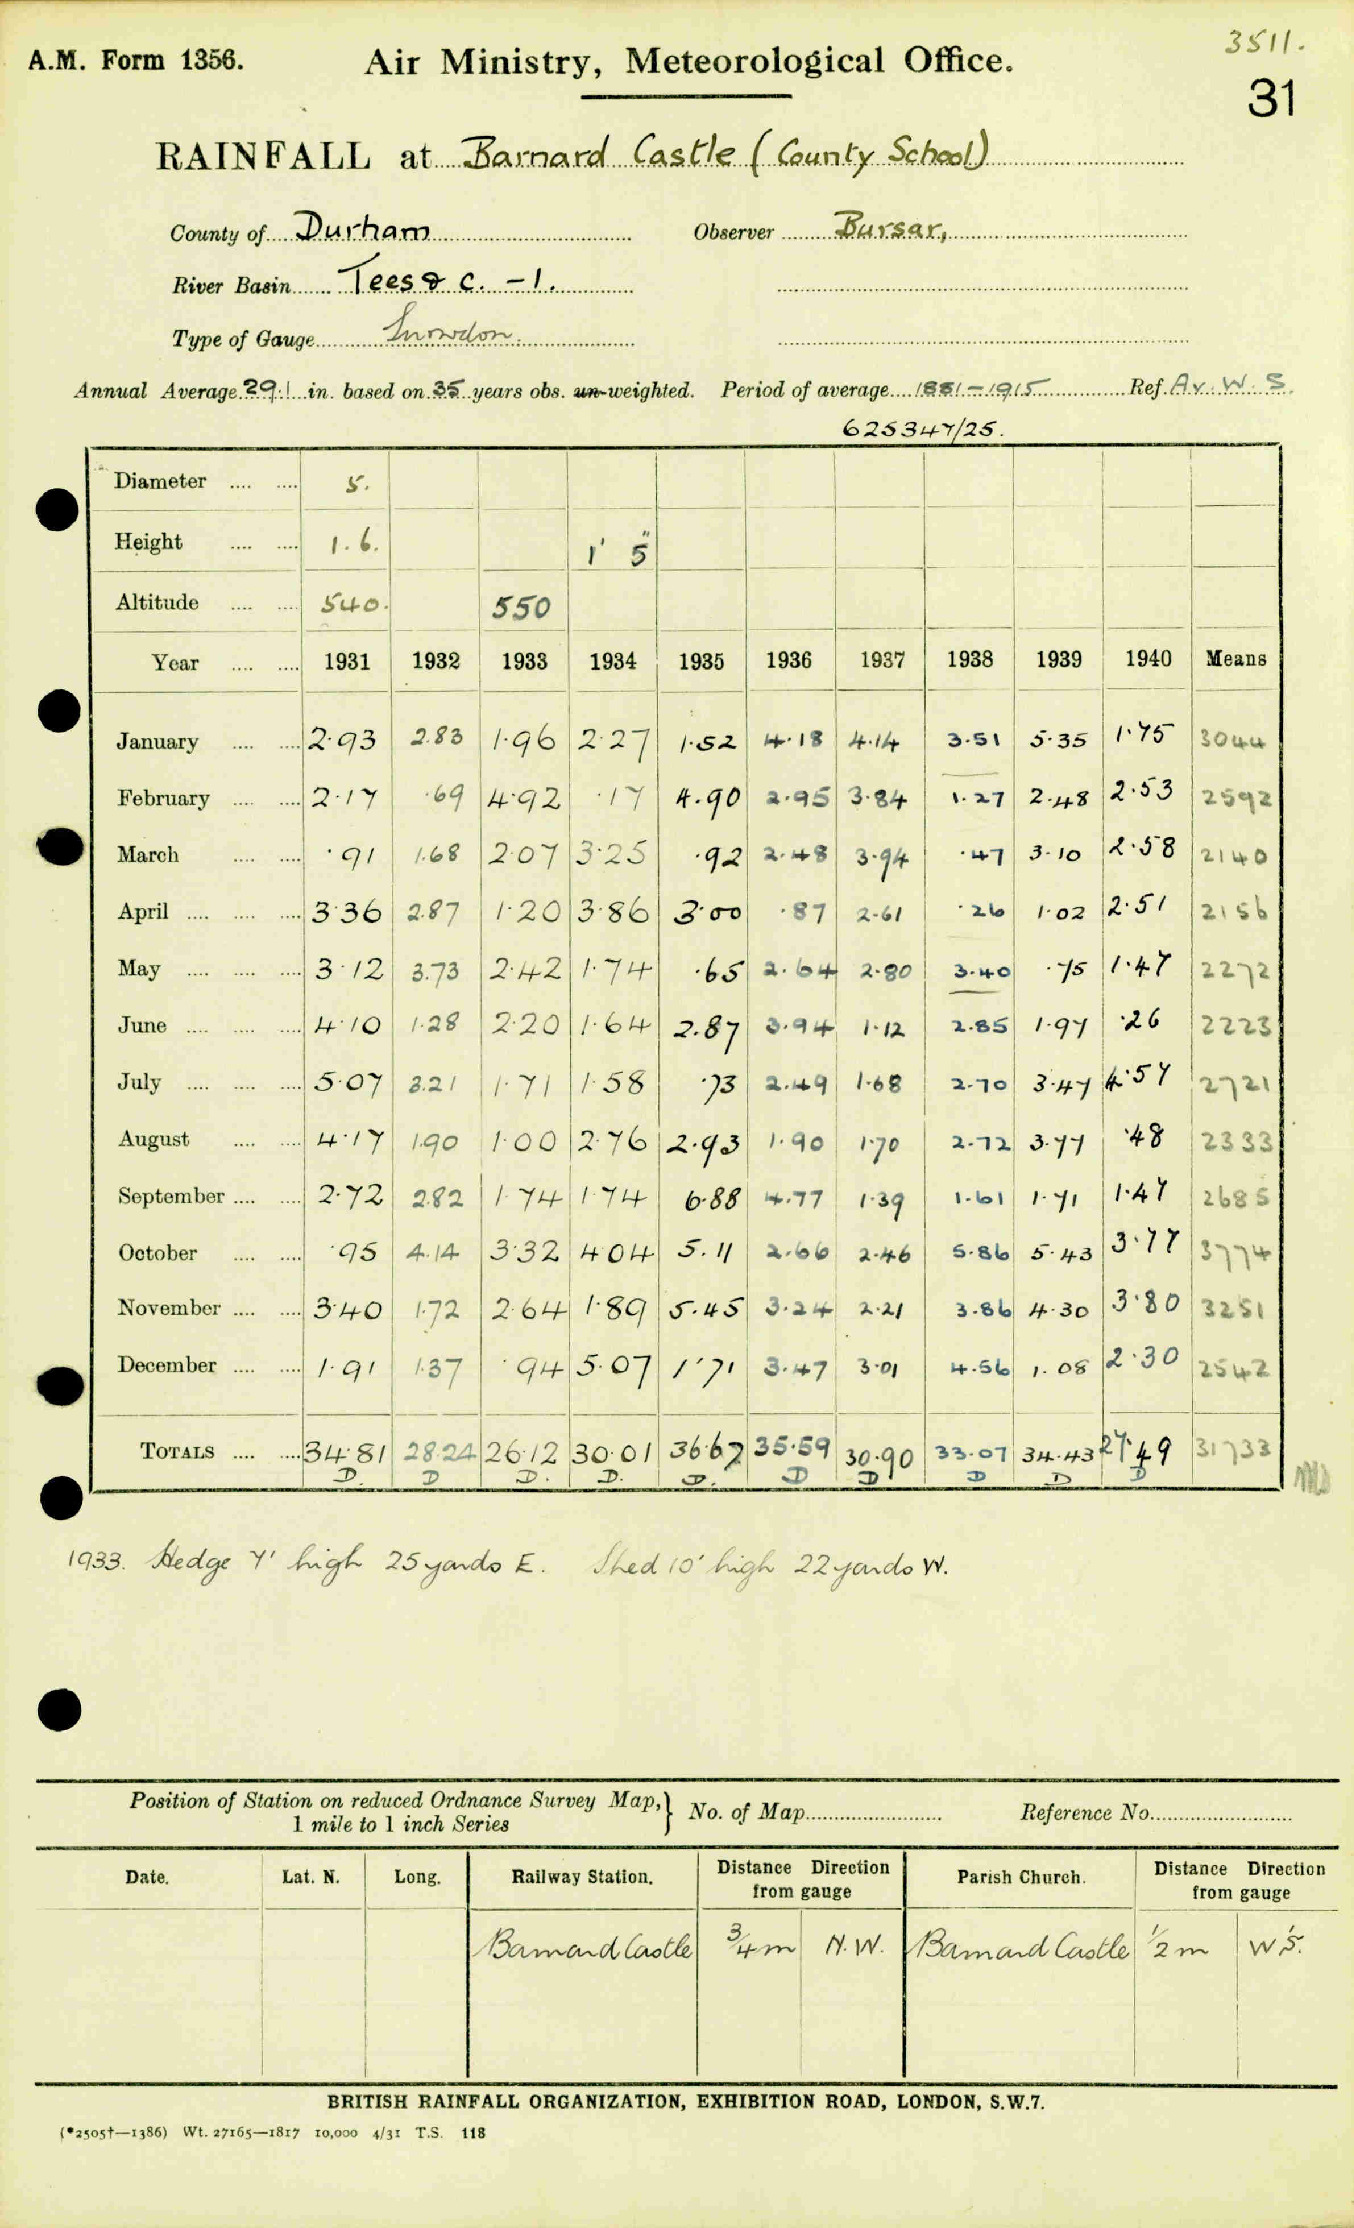 3511.
A.M. Form 1356. Air Ministry, Meteorological Office.
31
RAINFALL at Barnard Castle (County School)
County of Durham Observer Bursar,
River Basin Tees & c. - 1.
Type of Gauge Snowdon.
Annual Average 29.1 in. based on 35 years obs. un-weighted. Period of average 1881-1915 Ref. Av. W. S.
625347/25.
Diameter 5.
Height 1.6. 1' 5"
Altitude 540. 550
Year 1931 1932 1933 1934 1935 1936 1937 1938 1939 1940 Means
January 2.93 2.83 1.96 2.27 1.52 4.18 4.14 3.51 5.35 1.75 3044
February 2.17 .69 4.92 .17 4.90 2.95 3.84 1.27 2.48 2.53 2592
March .91 1.68 2.07 3.25 .92 2.48 3.94 .47 3.10 2.58 2140
April 3.36 2.87 1.20 3.86 3.00 .87 2.61 .26 1.02 2.51 2156
May 3.12 3.73 2.42 1.74 .65 2.64 2.80 3.40 .75 1.47 2272
June 4.10 1.28 2.20 1.64 2.87 3.94 1.12 2.85 1.97 .26 2223
July 5.07 3.21 1.71 1.58 .73 2.49 1.68 2.70 3.47 4.57 2721
August 4.17 1.90 1.00 2.76 2.93 1.90 1.70 2.72 3.77 .48 2333
September 2.72 2.82 1.74 1.74 6.88 4.77 1.39 1.61 1.71 1.47 2685
October .95 4.14 3.32 4.04 5.11 2.66 2.46 5.86 5.43 3.77 3774
November 3.40 1.72 2.64 1.89 5.45 3.24 2.21 3.86 4.30 3.80 3251
December 1.91 1.37 .94 5.07 1.71 3.47 3.01 4.56 1.08 2.30 2542
TOTALS 34.81 28.24 26.12 30.01 36.67 35.59 30.90 33.07 34.43 27.49 31733
D. D D. D. D. D D D D D
1933. Hedge 7' high 25 yards E. Shed 10' high 22 yards W.
Position of Station on reduced Ordnance Survey Map, } No. of Map Reference No.
1 mile to 1 inch Series
Date. Lat. N. Long. Railway Station. Distance Direction from gauge Parish Church. Distance Direction from gauge
Barnard Castle 3/4 m N.W. Barnard Castle 1/2 m W'S.
BRITISH RAINFALL ORGANIZATION, EXHIBITION ROAD, LONDON, S.W.7.
(*2505†—1386) Wt. 27165—1817 10,000 4/31 T.S. 118